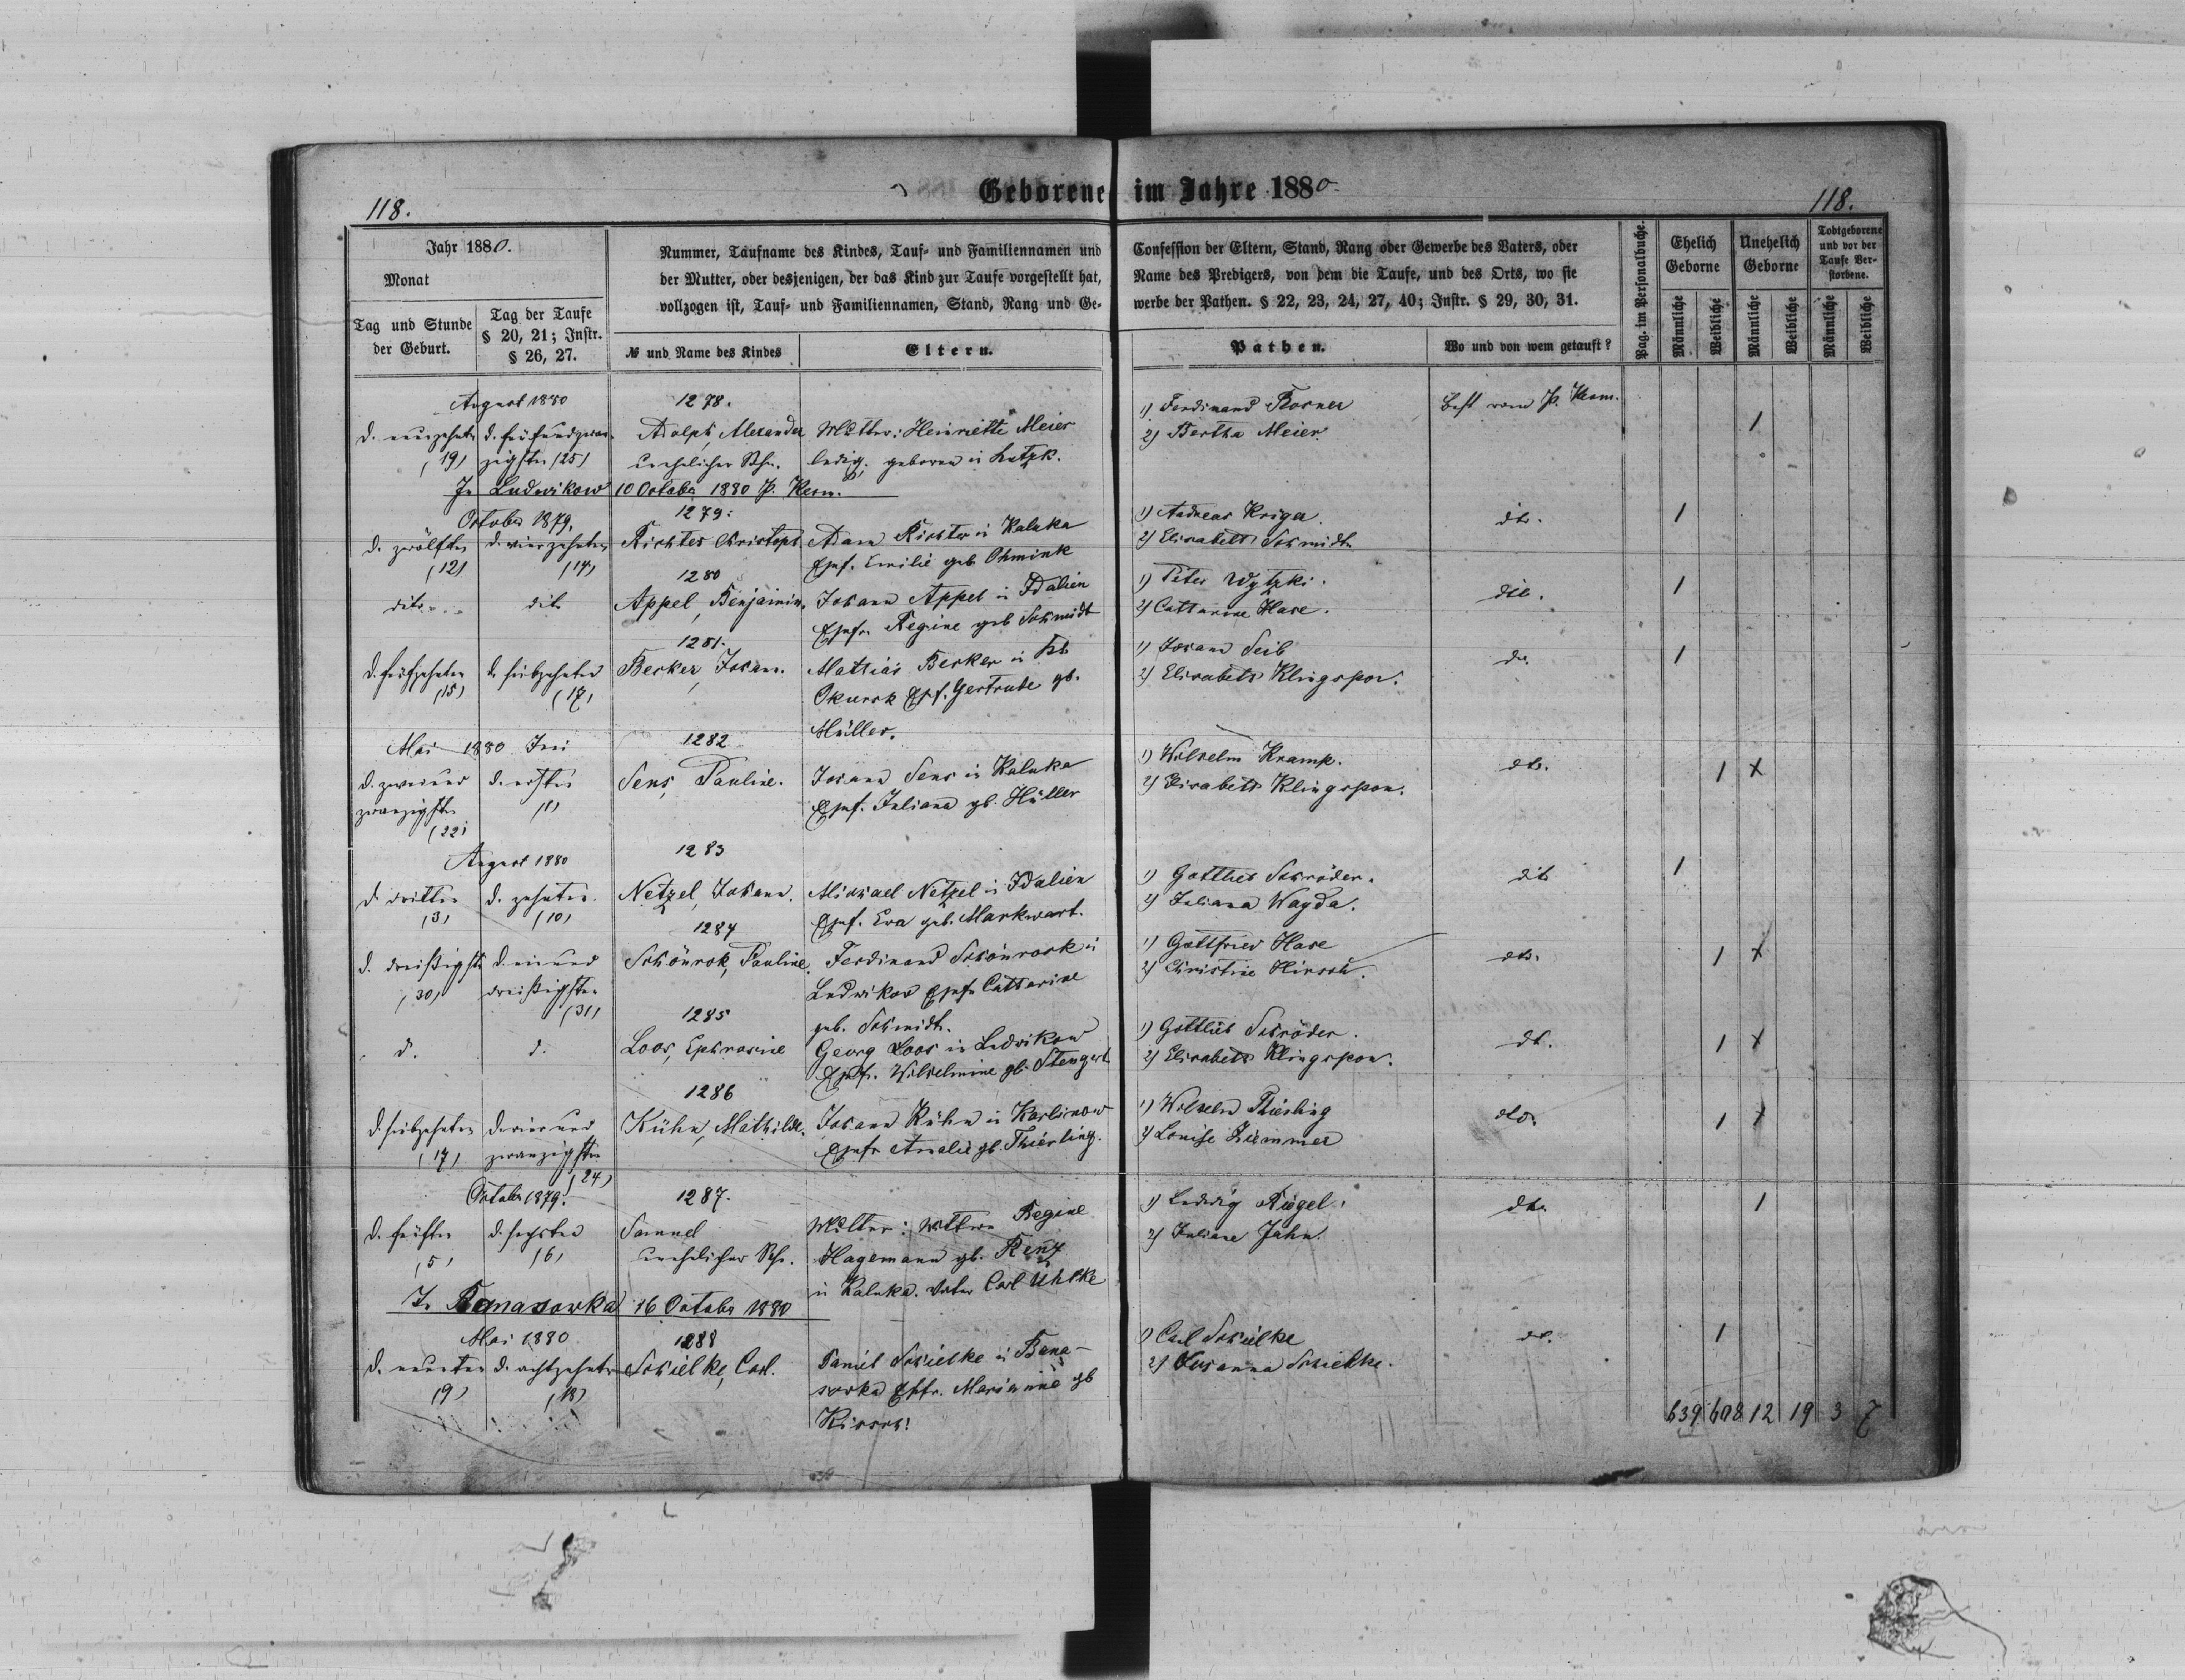 Geborene im Jahre 1880.
118.
118.
Jahr 1880.
Monat
Tag und Stunde
der Geburt.
Tag der Taufe
§ 20, 21; Instr.
§ 26, 27.
Nummer, Taufname des Kindes, Tauf- und Familiennamen und
der Mutter, oder desjenigen, der das Kind zur Taufe vorgestellt hat,
vollzogen ist, Tauf- und Familiennamen, Stand, Rang und Ge-
№ und Name des Kindes
Eltern.
Confession der Eltern, Stand, Rang oder Gewerbe des Vaters, oder
Name des Predigers, von dem die Taufe, und des Orts, wo sie
werbe der Pathen. § 22, 23, 24, 27, 40; Instr. § 29, 30, 31.
Pathen.
Wo und von wem getauft?
Pag. im Personalbuche.
Ehelich
Geborne
Unehelich
Geborne
Todtgeborene
und vor der
Taufe Ver-
storbene.
Männliche
Weibliche
Männliche
Weibliche
Männliche
Weibliche
August 1880
d. neunzehnte d. fünfundzwan-
(19) zigsten (25)
1278.
Adolph, Alexander
unehelicher Sohn.
Mutter: Henriette Meier
ledig, geboren in Lutzk.
1) Ferdinand Rosner
2) Bertha Meier.
vom P. Kern.
1
In Ludwikow 10 October 1880 P. Kern.
October 1879.
d. zwölften d. vierzehnten
(12) (14)
1279.
Richter Christoph.
Adam Richter in Kaluka
Ehefr. Emilie geb Ohmink
1) Andreas Kriger.
2) Elisabeth Schmidt
dto.
1
dito dito
1280
Appel, Benjamin.
Johann Appel in Idalien
Ehefr. Regine geb Schmidt
1) Peter Wytzki.
2) Catharine Hase.
dto.
1
d. fünfzehnten d. siebzehnten
(15) (17)
1281.
Becker, Johann.
Mathias Becker in Kl.
Okursk Ehefr. Gertrude gb.
Müller.
1) Johann Seib
2) Elisabeth Klingspon.
do.
1
Mai 1880 Juni
d. zweiund d. ersten
zwanzigsten (1)
(22)
1282
Sens, Pauline.
Johann Sens in Kaluka
Ehefr. Juliana gb. Hüller
1) Wilhelm Kramp.
2) Elisabeth Klingspon.
dto.
1 x
August 1880
d. dritten d. zehnten
(3) (10)
1283
Netzel, Johann.
Michael Netzel in Idalien
Ehefr. Eva geb. Markwart.
1) Gottlieb Schröder.
2) Juliana Wagda.
dito
1
d. dreißigste d. einund
(30) dreißigsten
(31)
1284
Schönrok, Pauline.
Ferdinand Schönrock in
Ludwikow Ehefr. Catharine
geb. Schmidt.
1) Gottfried Hase
2) Christine Hirsch.
dto.
1 x
d. d.
1285
Loos, Ephrosine
Georg Loos in Ludwikow
Ehefr. Wilhelmine gb. Stengert
1) Gottlieb Schröder.
2) Elisabeth Klingspon.
dt.
1 x
d. siebzehnten d. vierund
(17) zwanzigsten
(24)
1286
Kühn, Mathilde.
Johann Kühn in Karlinow
Ehefr. Amalie gb. Thierling.
1) Wilhelm Thierling
2) Louise Ziemmer
dto.
1 x
October 1879.
d. fünften d. sechsten
(5) (6)
1287.
Samuel
unehelicher Sohn.
Mutter: Wittwe Regine
Hagemann gb. Renz
in Kaluka. Vater Carl Uhlke
1) Ludwig Riegel.
2) Juliane Jahn.
dto.
1
In Banasowka 16 October 1880
Mai 1880
d. neunten d. achtzehnten
(9) (18)
1288
Schielke, Carl.
Daniel Schielke in Bana-
sowka Ehefr. Marianne gb
Kirsch.
1) Carl Schielke
2) Susanna Schielke.
dt.
1
639 608 12 19 3 7